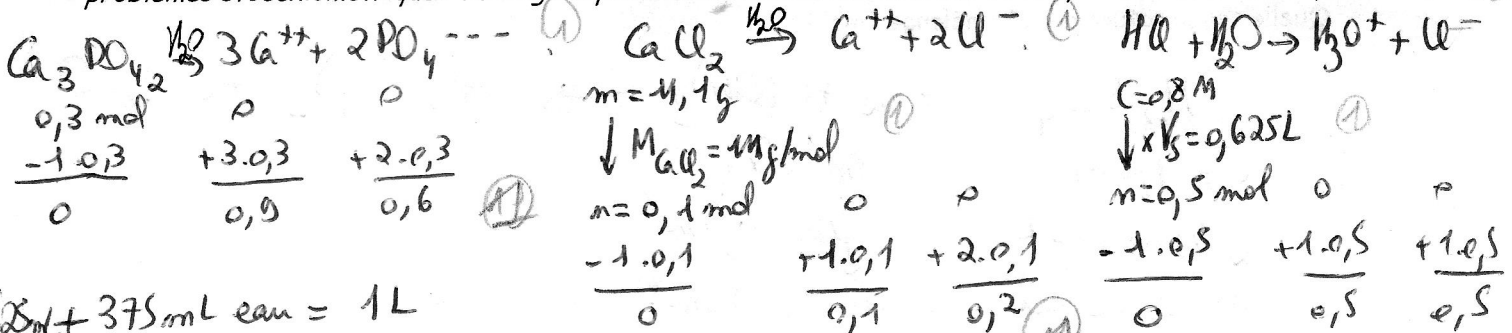 Ca3 PO4 2 →H2O 3Ca++ + 2PO4--- ①
0,3 mol 0 0
-1.0,3 +3.0,3 +2.0,3
0 0,9 0,6
CaCl2 →H2O Ca++ + 2Cl-. ①
m = 11,1g
↓ MCaCl2 = 111g/mol ①
n = 0,1 mol 0 0
-1.0,1 +1.0,1 +2.0,1
0 0,1 0,2 ①
HCl + H2O → H3O+ + Cl-
C=0,8 M
↓ x Vs = 0,625L ①
n=0,5 mol 0 0
-1.0,5 +1.0,5 +1.0,5
0 0,5 0,5
+ 375 mL eau = 1L